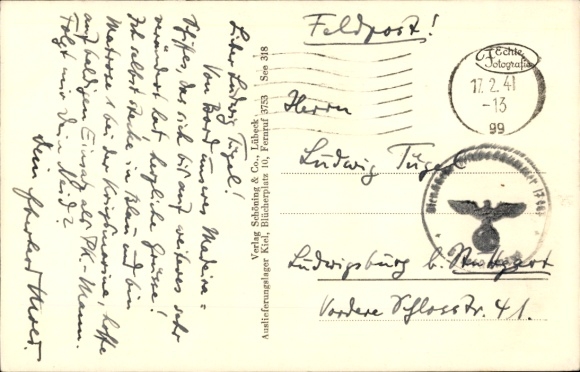 Lieber Ludwig Tügel!
Von Bord unseres
Schiffes, das sich bis auf weiteres sehr
verändert hat, herzliche Grüsse!
Ich selbst stecke in Blau und bin
Matrose 1 bei der Kriegsmarine, hoffe
auf baldigen Einsatz als P.K.-Mann.
Folgt mir Dein Neid?
Dein Eberhard
Verlag Schöning & Co., Lübeck.
Auslieferungslager Kiel, Blücherplatz 10, Fernruf 3753 See 318
Feldpost!
Echte
Fotografie
17.2.41
-13
99
Herrn
Ludwig Tügel
Ludwigsburg b. Stuttgart
Vordere Schlosstr. 41.